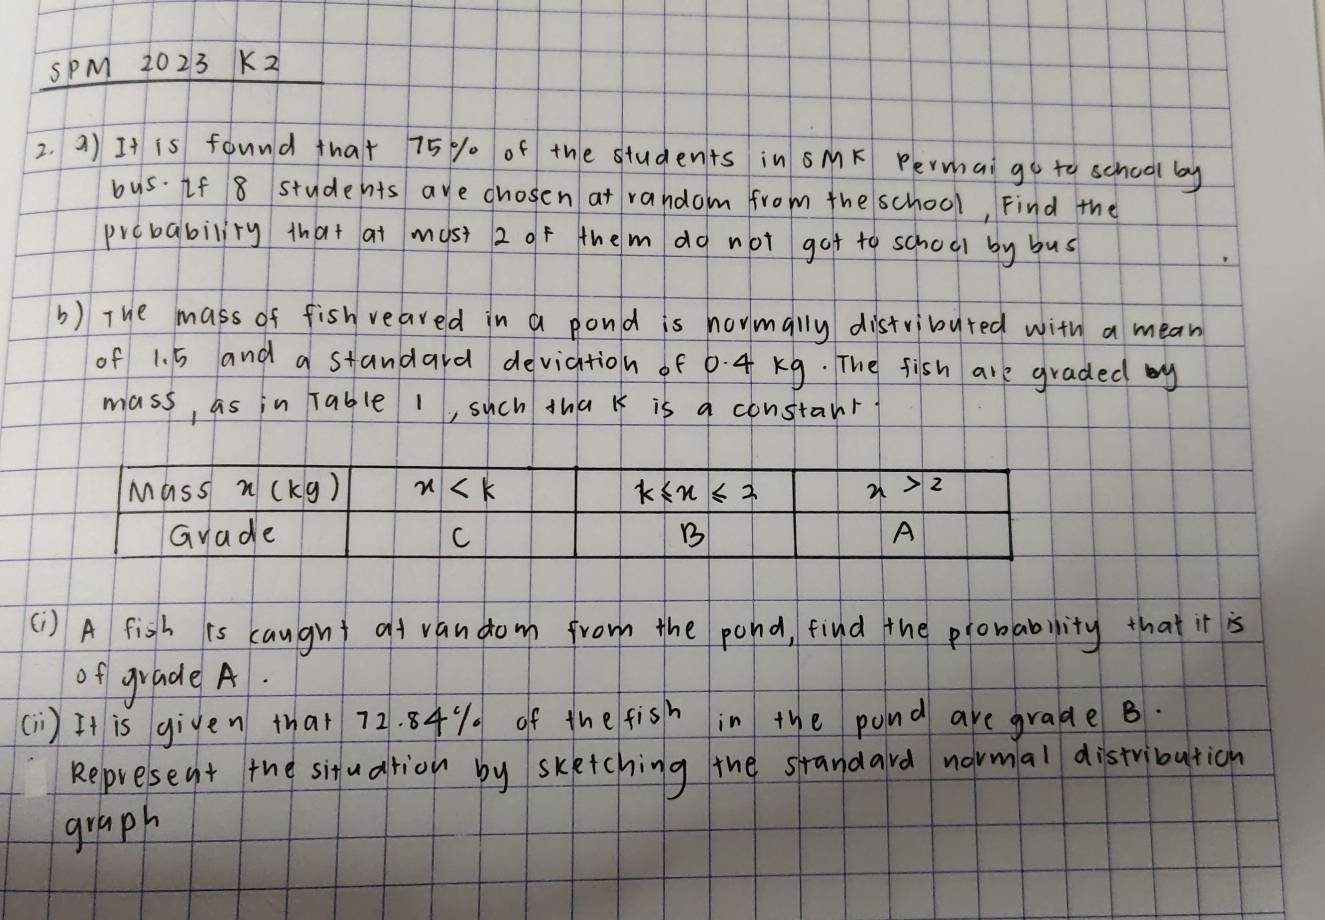 SPM 2023 K2
2. a) It is found that 75% of the students in SMK Permai go to school by
bus. If 8 students are chosen at random from the school, Find the
probability that at most 2 of them do not got to school by bus
b) The mass of fish reared in a pond is normally distributed with a mean
of 1.5 and a standard deviation of 0.4 kg. The fish are graded by
mass, as in Table 1, such tha K is a constant.
Mass x (kg) x < k k ≤ x ≤ 2 x > 2
Grade C B A
(i) A fish is caught at random from the pond, find the probability that it is
of grade A.
(ii) It is given that 72.84% of the fish in the pond are grade B.
Represent the situation by sketching the standard normal distribution
graph